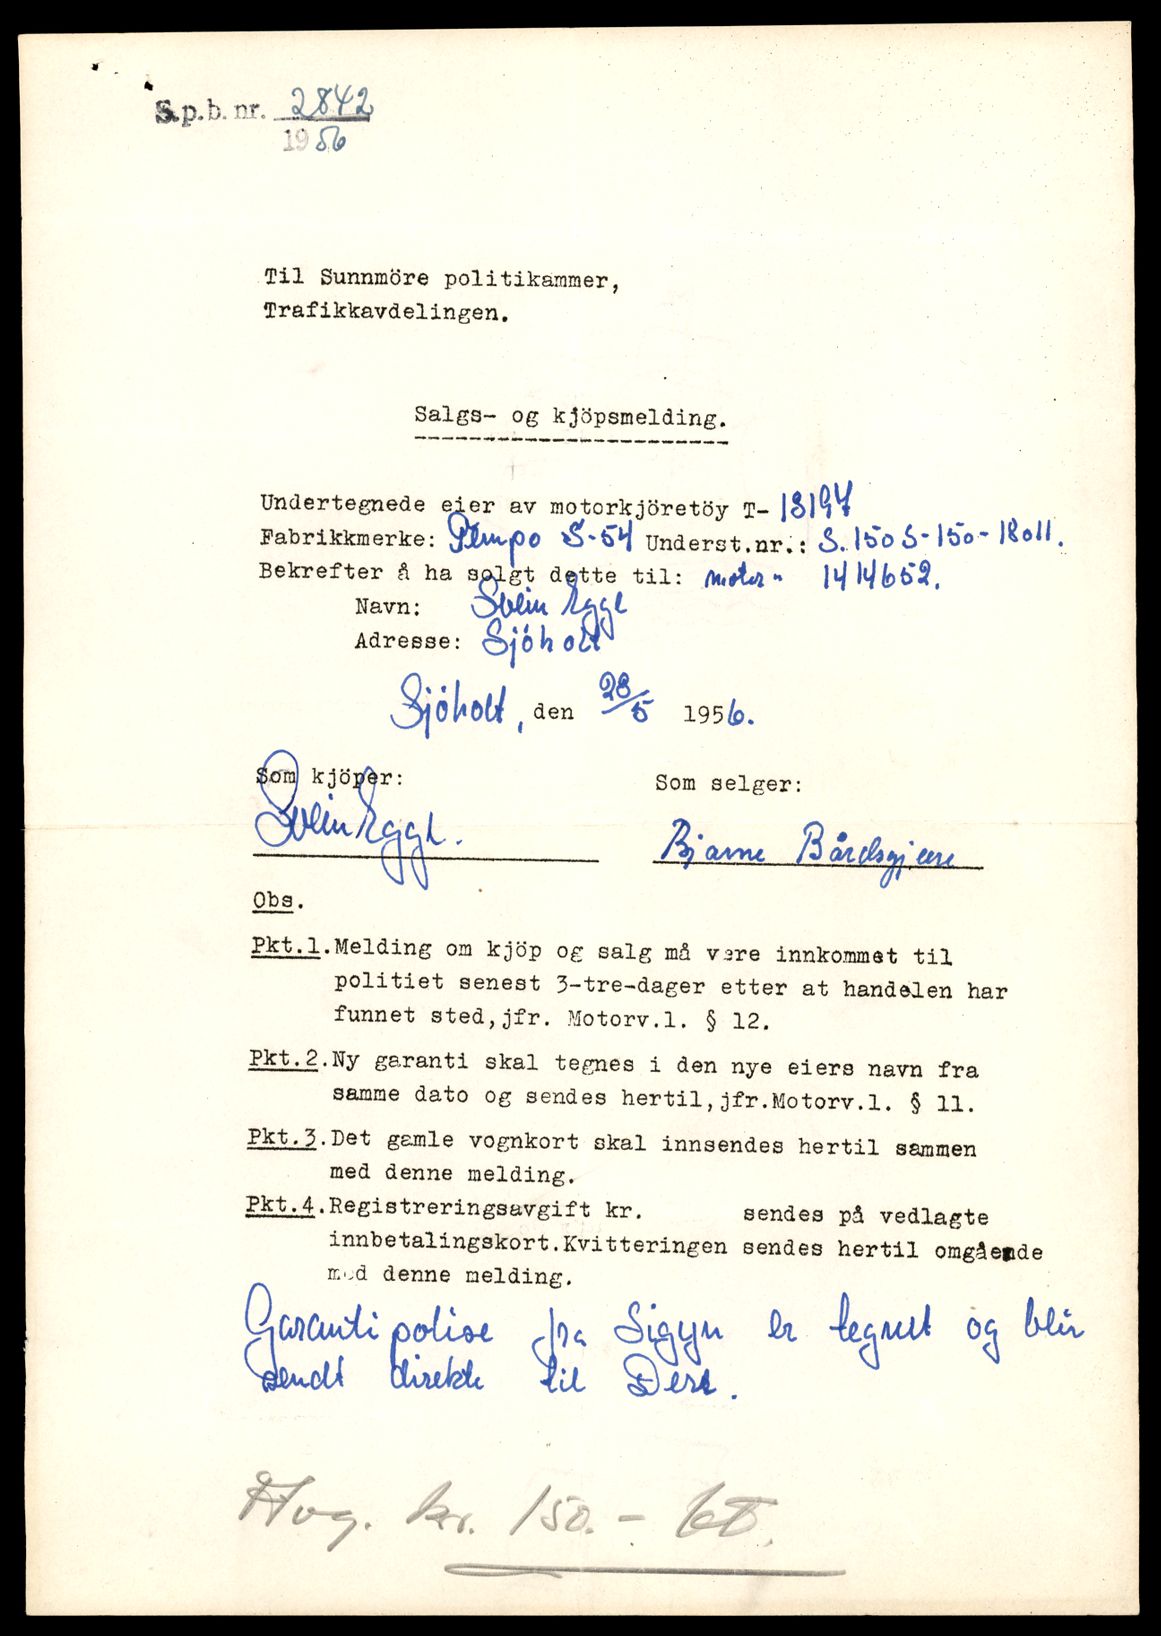 S.p.b. nr. 2842
1956
Til Sunnmöre politikammer,
Trafikkavdelingen.
Salgs- og kjöpsmelding.
Undertegnede eier av motorkjöretöy T- 13197
Fabrikkmerke: Tempo S-54 Underst.nr.: S.150S-150-18011.
Bekrefter å ha solgt dette til: motor " 1414652.
Navn: Svein Egge
Adresse: Sjöholt
Sjöholt, den 28/5 1956.
Som kjöper: Som selger:
Svein Egge. Bjarne Bårdsgjære
Obs.
Pkt.1. Melding om kjöp og salg må være innkommet til
politiet senest 3-tre-dager etter at handelen har
funnet sted, jfr. Motorv.l. § 12.
Pkt.2. Ny garanti skal tegnes i den nye eiers navn fra
samme dato og sendes hertil, jfr.Motorv.l. § 11.
Pkt.3. Det gamle vognkort skal innsendes hertil sammen
med denne melding.
Pkt.4. Registreringsavgift kr. sendes på vedlagte
innbetalingskort.Kvitteringen sendes hertil omgående
med denne melding.
Garanti polise fra Sigyn er tegnet og blir
sendt direkte til Dere.
kr. 150.-